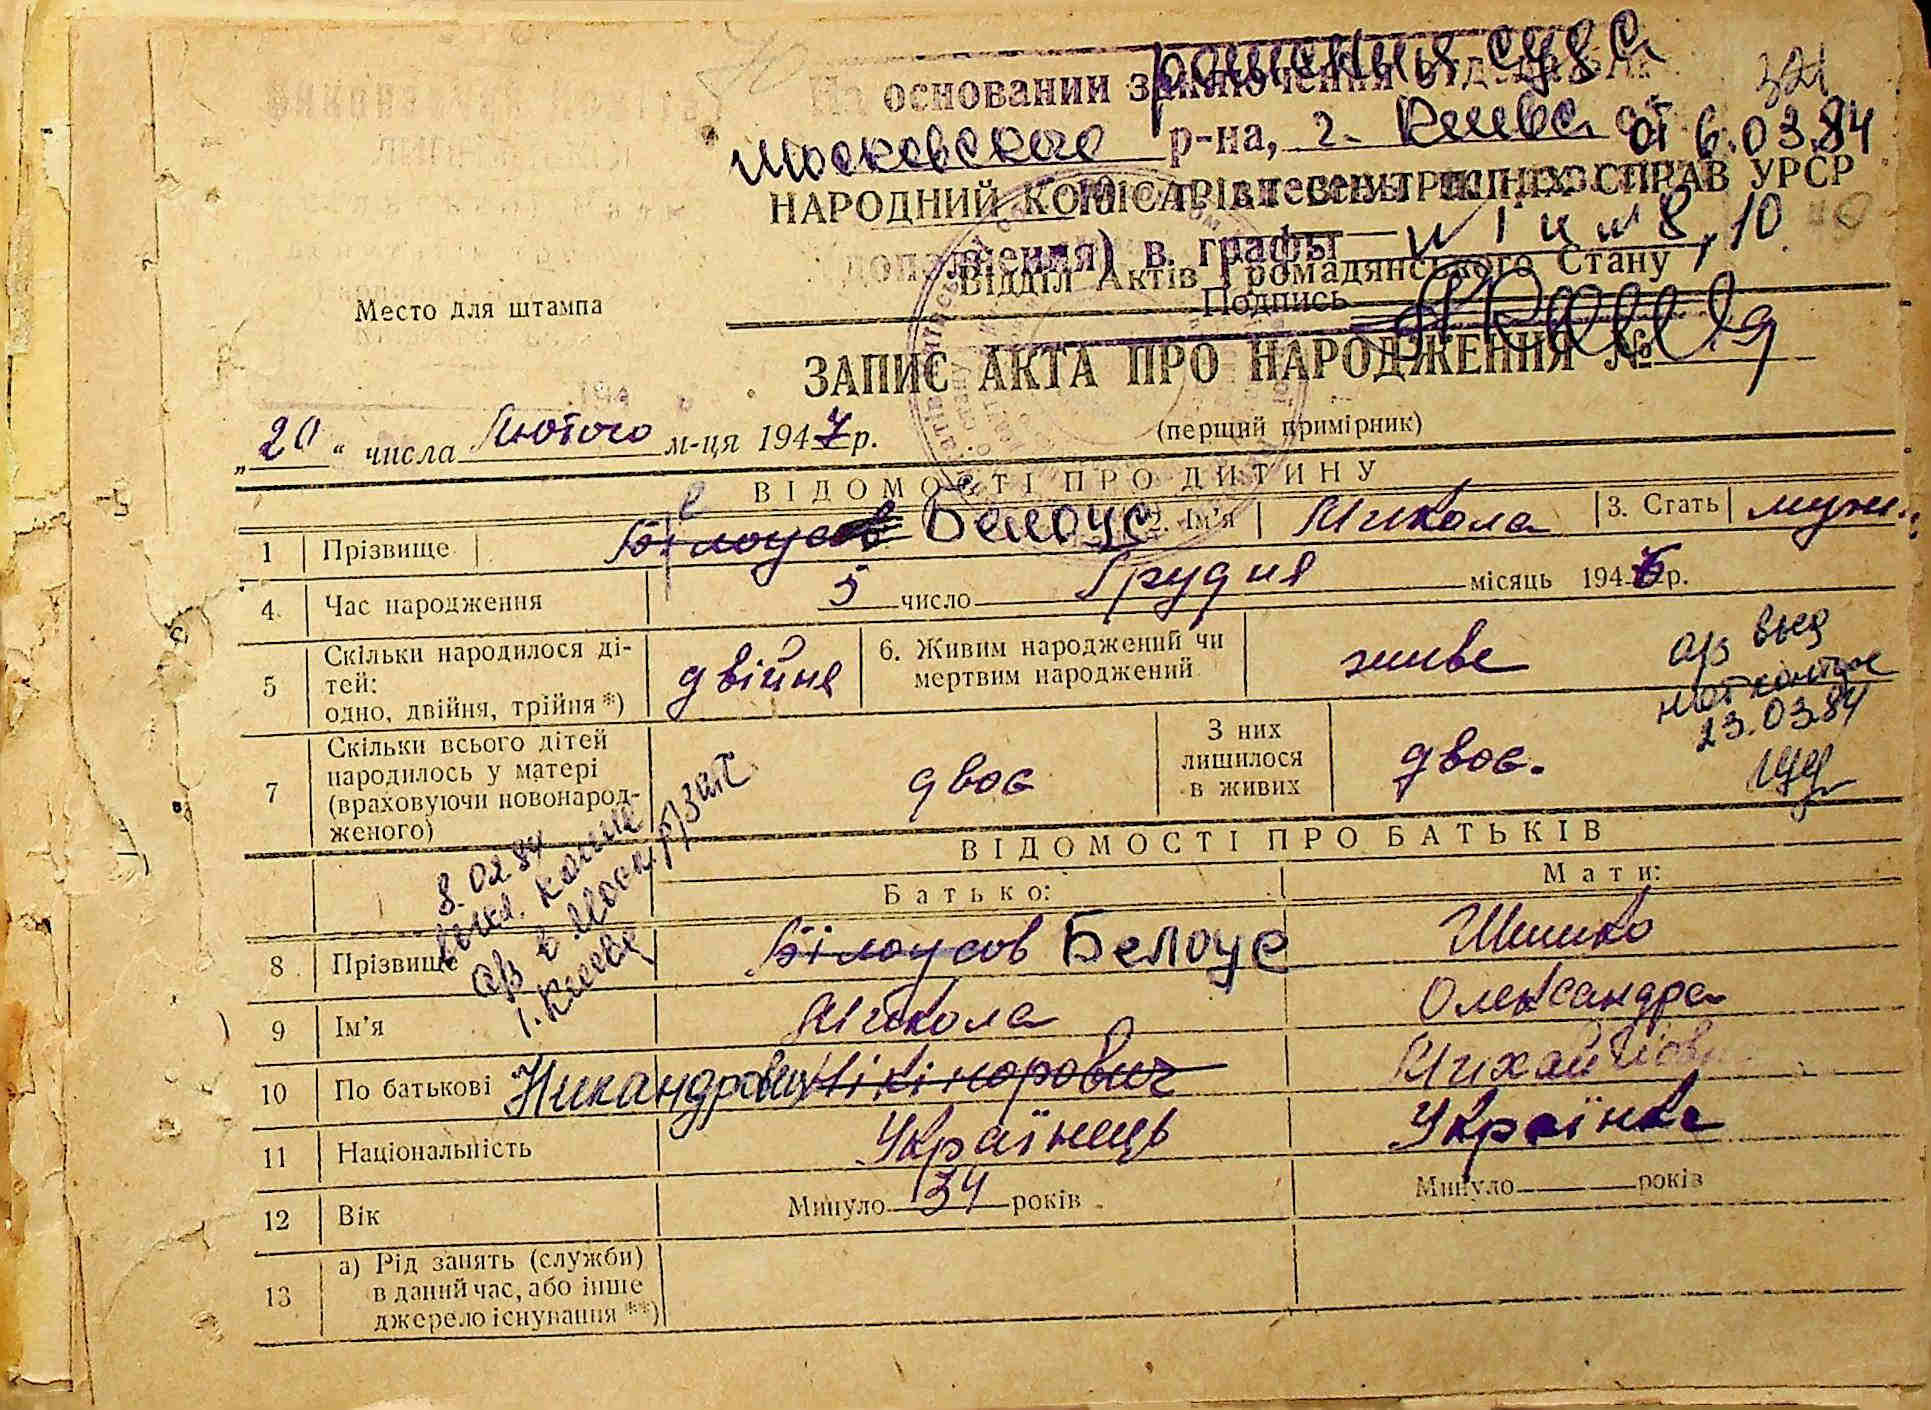 решения суда
На основании заключения
321
Московского р-на, г. Киева от 6.03.84
НАРОДНИЙ КОМІСАРІАТ ВНУТРІШНІХ СПРАВ УРСР
внесены
дополнения) в графы № 1 и № 8, 10
Відділ Актів Громадянського Стану
Подпись
Место для штампа
ЗАПИС АКТА ПРО НАРОДЖЕННЯ №
(перщий примірник)
„20“ числа Лютого м-ця 1947 р.
ВІДОМОСТІ ПРО ДИТИНУ
1 Прізвище Білоусов Белоус 2. Ім’я Микола 3. Стать муж.
4. Час народження 5 число Грудня місяць 1946 р.
5 Скільки народилося ді-
тей:
одно, двійня, трійня *)
двійня
6. Живим народжений чи
мертвим народжений
живе
23.03.84
7 Скільки всього дітей
народилось у матері
(враховуючи новонарод-
женого)
двоє
З них
лишилося
в живих
двоє.
8.02.84
в Моск. р/загс
г. Киева
ВІДОМОСТІ ПРО БАТЬКІВ
Батько: Мати:
8 Прізвище Білоусов Белоус Шишко
9 Ім’я Микола Олександра
10 По батькові Никандрович Нікінорович
11 Національність Українець Українка
12 Вік Минуло 34 років Минуло років
13 а) Рід занять (служби)
в даний час, або інше
джерело існування **)